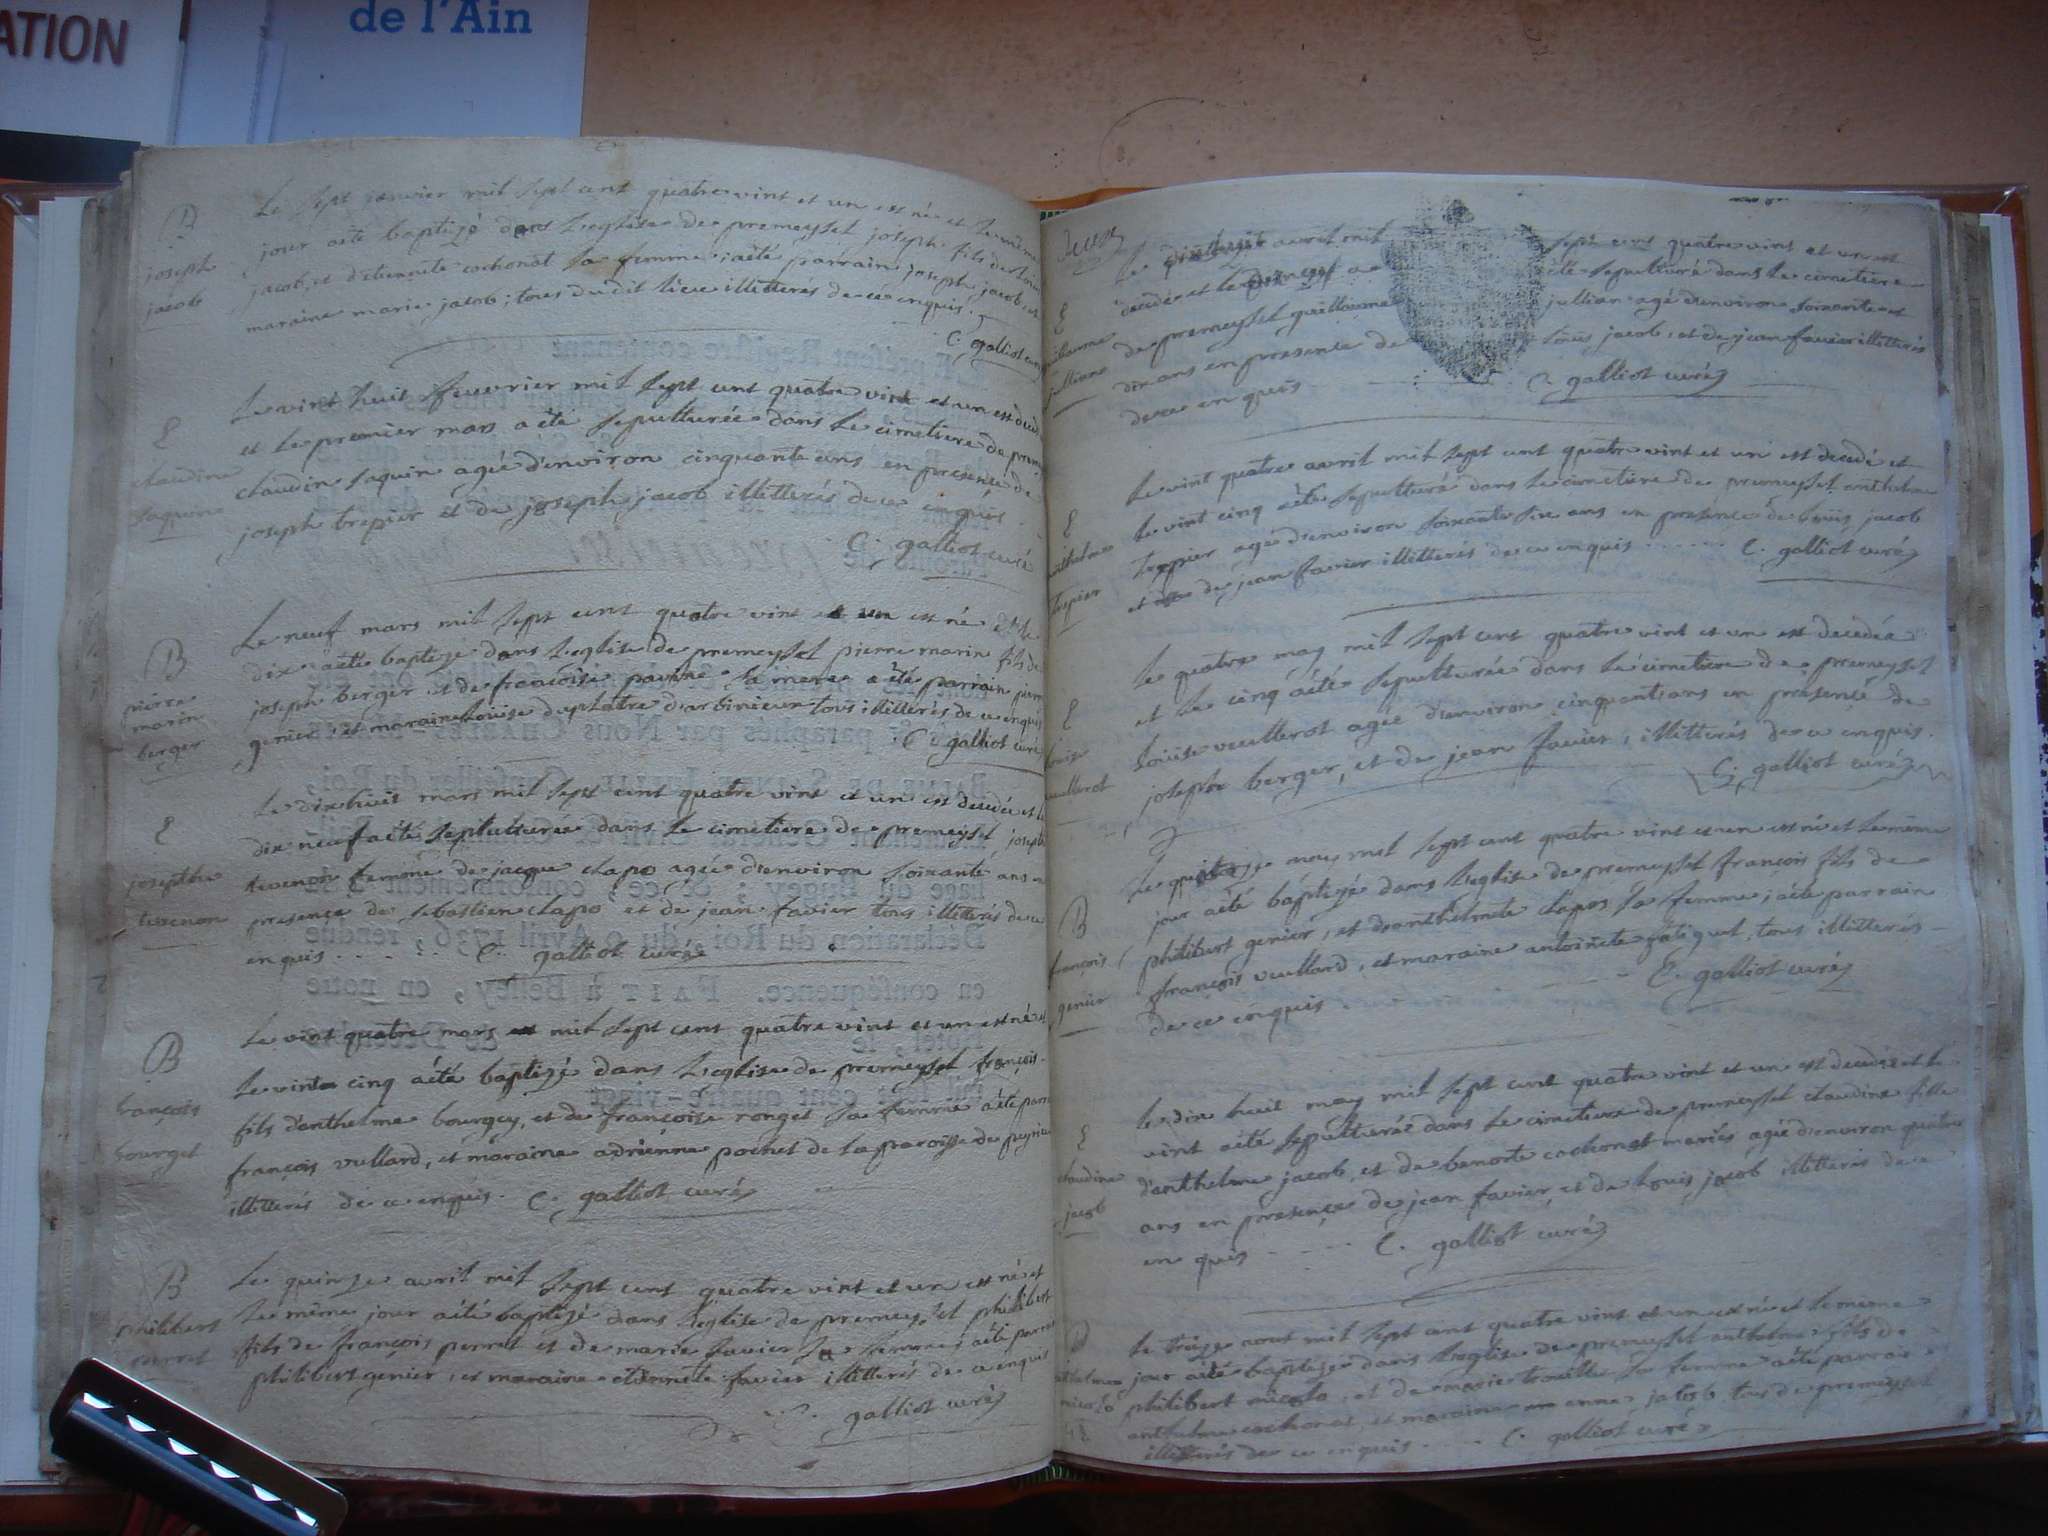 ATION
de l'Ain
B
joseph
jacob
Le sept janvier mil sept cent quatre vint et un est né et le même
jour aété baptizé dans L'eglise de premeysel joseph fils de
jacob, et d'etiennete cochonat sa femme; aété parrain joseph jacob et
maraine marie jacob; tous dudit lieu illitterés de ce enquis.
C. galliot curé
E
claudine
saquin
Le vint huit ffeuvrier mil sept cent quatre vint et un est décédé
et le premier mars a été sepulturée dans le cimetiere de prem
claudin saquin agée d'environ cinquante ans en presence de
joseph trepier et de joseph jacob illitterés de ce enquis.
C. galliot curé
B
pierre
marin
berger
Le neuf mars mil sept cent quatre vint et un est né et le
dix aété baptizé dans L'eglise de premeysel pierre marin fils de
joseph berger et de francoise pavine sa mere a été parrain pierre
genier et maraine Louise duplatre d'arbinieu tous illitterés de ce enquis
C. galliot curé
E
josephte
tevenon
Le dixhuit mars mil sept cent quatre vint et un est decedée et le
dix neuf aété sepulturée dans le cimetiere de premeysel josepht
tevenon femme de jacque clapo agée d'environ soixante ans en
presence de sebastien clapo et de jean favier tous illitterés de ce
enquis . . . . . C. galliot curé
B
françois
bourget
Le vint quatre mars mil sept cent quatre vint et un est né et
le vint cinq aété baptizé dans L'eglise de premeysel françois
fils d'anthelme bourgey, et de françoise ronget sa femme aété parra
françois vullard, et maraine adrienne pochet de la paroisse de peyrieu
illitterés de ce enquis. C. galliot curé
B
philibert
perret
Le quinze avril mil sept cent quatre vint et un est né et
le même jour aété baptizé dans L'eglise de premeysel philibert
fils de françois perret et de marie favier sa femme aété parra
philibert génier, et maraine etiennete favier illitterés de ce enquis
C. galliot curé
E
guillaume
jullian
Le dixhuit avril mil sept cent quatre vint et un est
décédé et le a été sepulturé dans le cimetiere
de premeysel guillaume jullian agé d'environ soixante et
dix ans en presence de Loüis jacob, et de jean favier illitterés
de ce enquis C. galliot curé
E
anthelme
trepier
Le vint quatre avril mil sept cent quatre vint et un est decedé et
le vint cinq aété sepulturé dans le cimetiere de premeysel anthelme
trepier agé d'environ soixante six ans en presence de Loüis jacob
et de jean favier illitterés de ce enquis . . . . . C. galliot curé
E
Louise
veullerot
Le quatre may mil sept cent quatre vint et un est decedée
et le cinq aété sepulturée dans le cimetiere de premeysel
Loüise veullerot agée d'environ cinquante ans en présence de
josephe berger, et de jean favier, illitterés de ce enquis.
C. galliot curé
B
françois
genier
Le quatorze may mil sept cent quatre vint et un est né et le même
jour aété baptizé dans L'eglise de premeysel françois fils de
philibert genier, et d'anthelmete clapoz sa femme; aété parrain
françois vullard, et maraine antoinete falquet, tous illitterés
de ce enquis . C. galliot curé
E
claudine
jacob
Le dix huit may mil sept cent quatre vint et un est decedée et le
vint aété sepulturée dans le cimetiere de premeysel claudine fille
d'anthelme jacob, et de benoite cochonat mariés agée d'environ quatre
ans en presence de jean favier, et de Louis jacob illitterés de ce
en quis . . . . . C. galliot curé
B
anthelme
micolo
Le treize aout mil sept cent quatre vint et un est né et le même
jour aété baptize dans L'eglise de premeysel anthelme fils de
philibert micolo, et de marie trouillet sa femme aété parrai
anthelme cochonat, et maraine enne jacob tous de premeysel
illitterés de ce enquis . . . . C. galliot curé